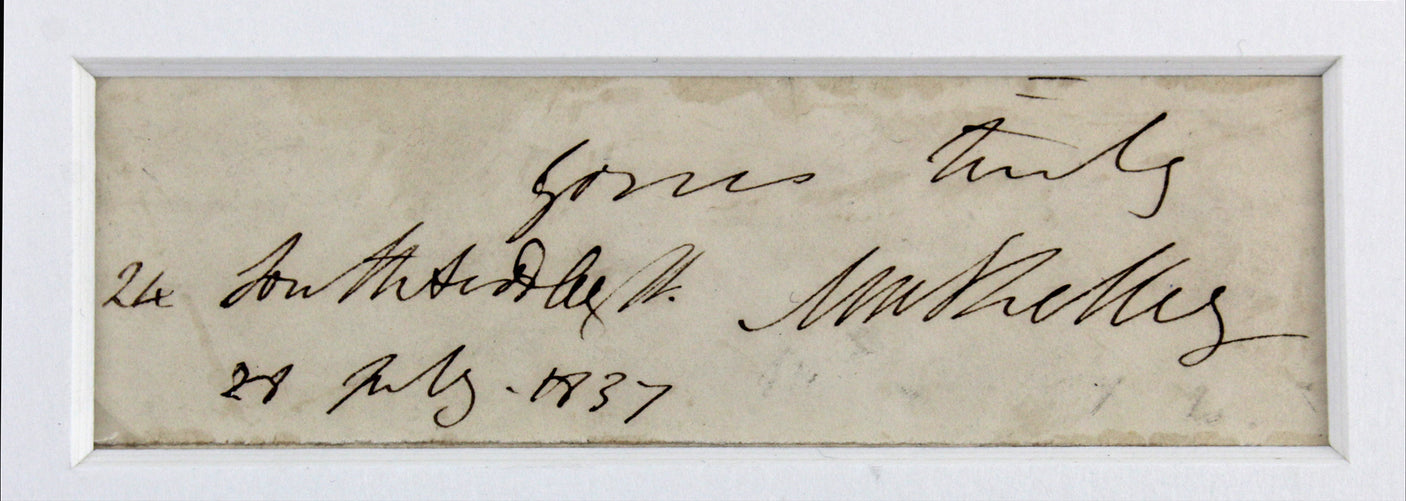 Yours truly
24 South Audley St.
MWShelley
28 July - 1837